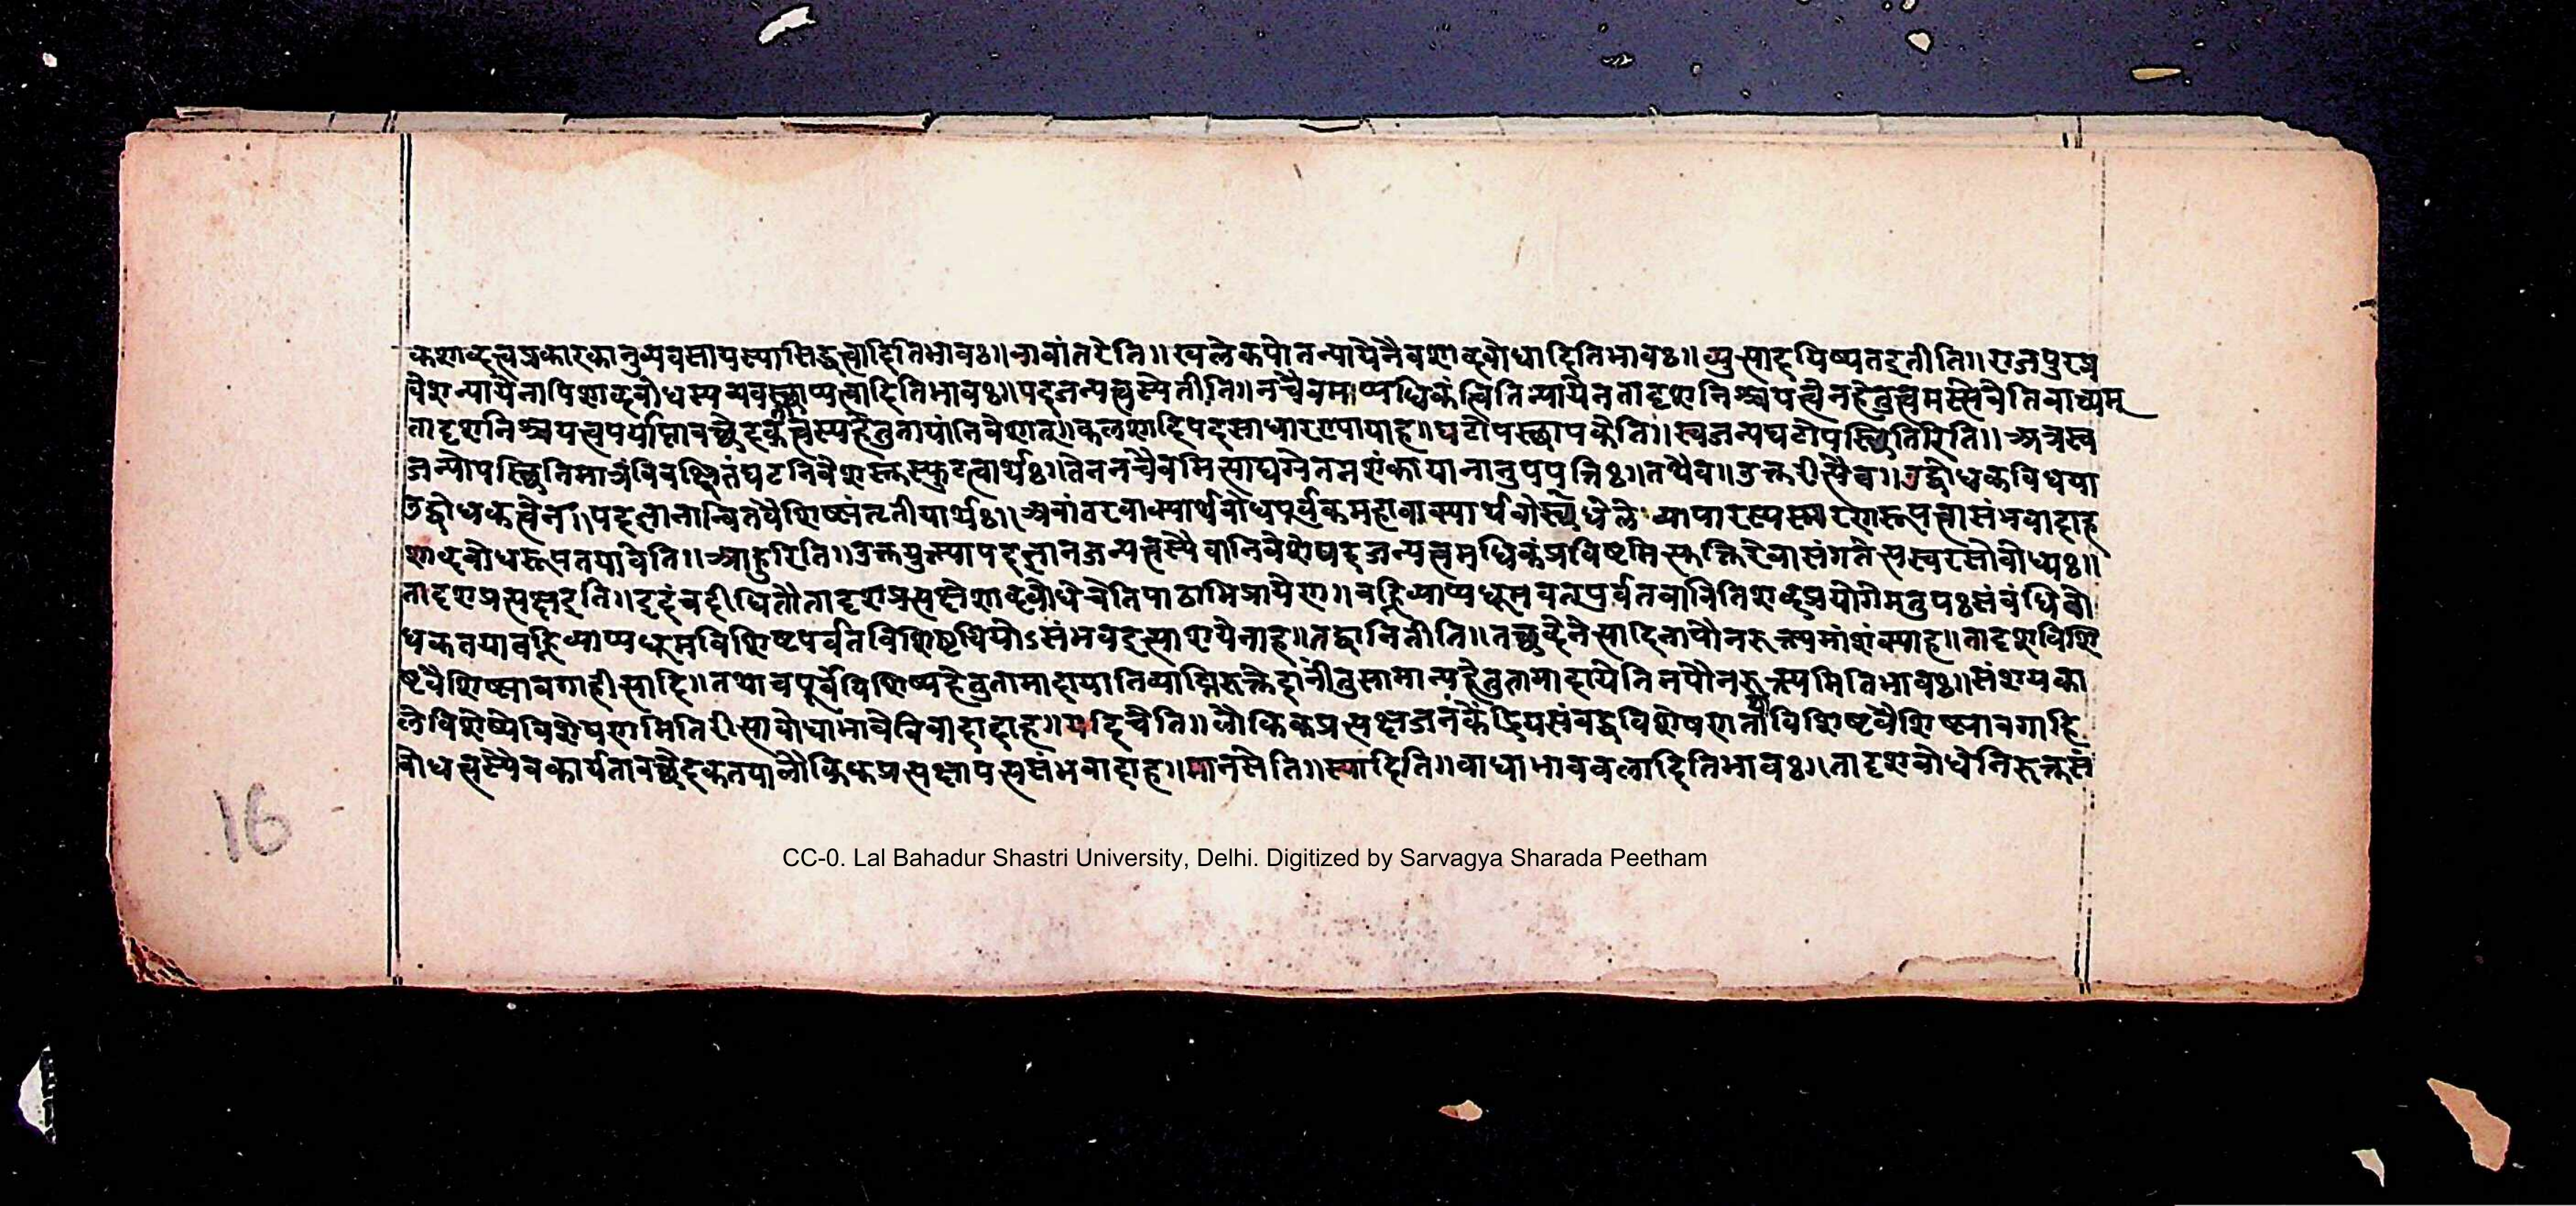 कशाब्दत्वप्रकारकानुव्यवसायस्यासिद्धत्वादितिभावः॥नावांतरेति॥खलेकपोतन्यायेनैवशाब्दबोधादितिभावः॥व्युत्सादयिष्यतइतीति॥राजपुरुष
वेशन्यायेनापिशाब्दबोधस्यव्यवस्थाप्यत्वादितिभावः॥पदजन्यत्वस्येतीति॥नचैवमाप्यधिकंत्वितिन्यायेनतादृशनिश्चयत्वेनहेतुत्वमस्त्वेवेतिवाच्यम्
तादृशनिश्चयत्वपर्याप्तावच्छेदकत्वस्यहेतुतायांनिवेशात्॥कलशादिपदसाधारण्यायाह॥घटोपस्थापकेति॥स्वजन्यघटोपस्थितिरिति॥अत्रस्व
जन्योपस्थितिमात्रंविवक्षितंघटनिवेशस्तुस्फुटत्वार्थः॥तेननचैवमित्साद्यग्रेतनशंकायानानुपपत्तिः॥तथैव॥उक्तरीत्यैव॥उद्बोधकविधया
उद्बोधकत्वेन॥पदज्ञानान्वितवैशिष्ट्यंतृतीयार्थः॥अवांतरवाक्यार्थबोधपूर्वकमहावाक्यार्थबोधस्थले व्यापारस्यस्मरणरूपत्वासंभवादाह
शाब्दबोधरूपतयावेति॥आहुरिति॥उक्तयुक्त्यापदज्ञानजन्यत्वस्यैवानिवेशेपदजन्यत्वमधिकंप्रविष्टमित्युक्तिरेवासंगतेत्यस्वरसोबोध्यः॥
तादृशप्रत्यक्षइति॥इदंचदीधितौतादृशप्रत्यक्षेशाब्दबोधेचेतिपाठाभिप्रायेण॥वह्निव्याप्यधूमवत्पर्वतवानितिशब्दप्रयोगेमतुपःसंबंधिबो
धकतयावह्निव्याप्यधूमविशिष्टपर्वतविशिष्टधियोऽसंभवइत्याशयेनाह॥तद्वानितीति॥तच्छब्देनेत्यादिनापौनरुक्त्यमाशंक्याह॥तादृशविशि
ष्टवैशिष्ट्यावगाहीत्यादि॥तथाचपूर्वंविशिष्यहेतुतामादायातिव्याप्तिरुक्तेदानींतुसामान्यहेतुतामादायेतिनपौनरुक्त्यमितिभावः॥संशयका
लेविशेष्येविशेषणमितिरीत्याबोधाभावेविवादादाह॥यदिचेति॥लौकिकप्रत्यक्षेजनकेंद्रियसंबद्धविशेषणतौविशिष्टवैशिष्ट्यावगाहि
बोधत्वस्यैवकार्यतावच्छेदकतयालौकिकप्रत्यक्षापत्त्यसंभवादाह॥मानसेति॥स्यादिति॥बाधाभावबलादितिभावः॥तादृशबोधेनिरुक्तसं
16
CC-0. Lal Bahadur Shastri University, Delhi. Digitized by Sarvagya Sharada Peetham